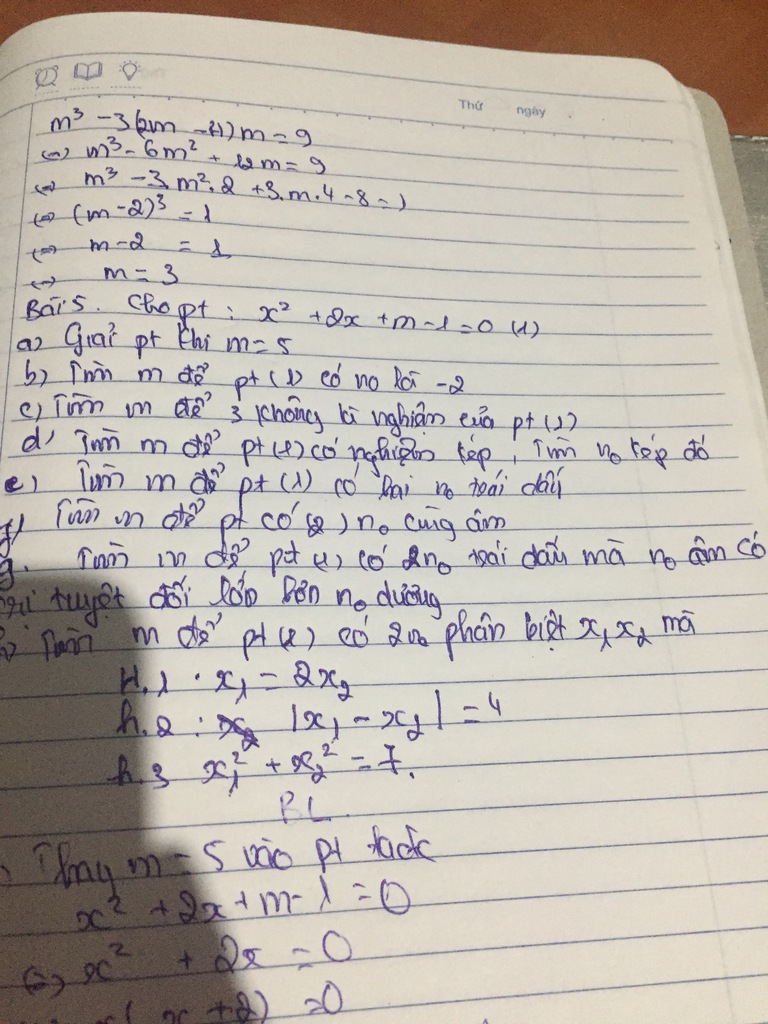 Thứ ngày
m³ - 3(2m - 4)m = 9
⇔ m³ - 6m² + 12m = 9
⇔ m³ - 3.m².2 + 3.m.4 - 8 = 1
⇔ (m-2)³ = 1
⇔ m-2 = 1
⇔ m = 3
Bài 5. Cho pt : x² + 2x + m - 1 = 0 (1)
a) Giải pt khi m = 5
b) Tìm m để pt (1) có no là -2
c) Tìm m để 3 không là nghiệm của pt (1)
d) Tìm m để pt (1) có nghiệm kép, Tìm no kép đó
e) Tìm m để pt (1) có hai no trái dấu
f) Tìm m để pt có (2) no cùng âm
g. Tìm m để pt (1) có 2no trái dấu mà no âm có
tuyệt đối lớn hơn no dương
Tìm m để pt (1) có 2no phân biệt x₁ x₂ mà
H.1 . x₁ = 2x₂
h.2 : |x₁ - x₂| = 4
h.3 x₁² + x₂² = 7.
BL
Thay m = 5 vào pt tađc
x² + 2x + m - 1 = 0
⇔ x² + 2x = 0
x(x+2) = 0